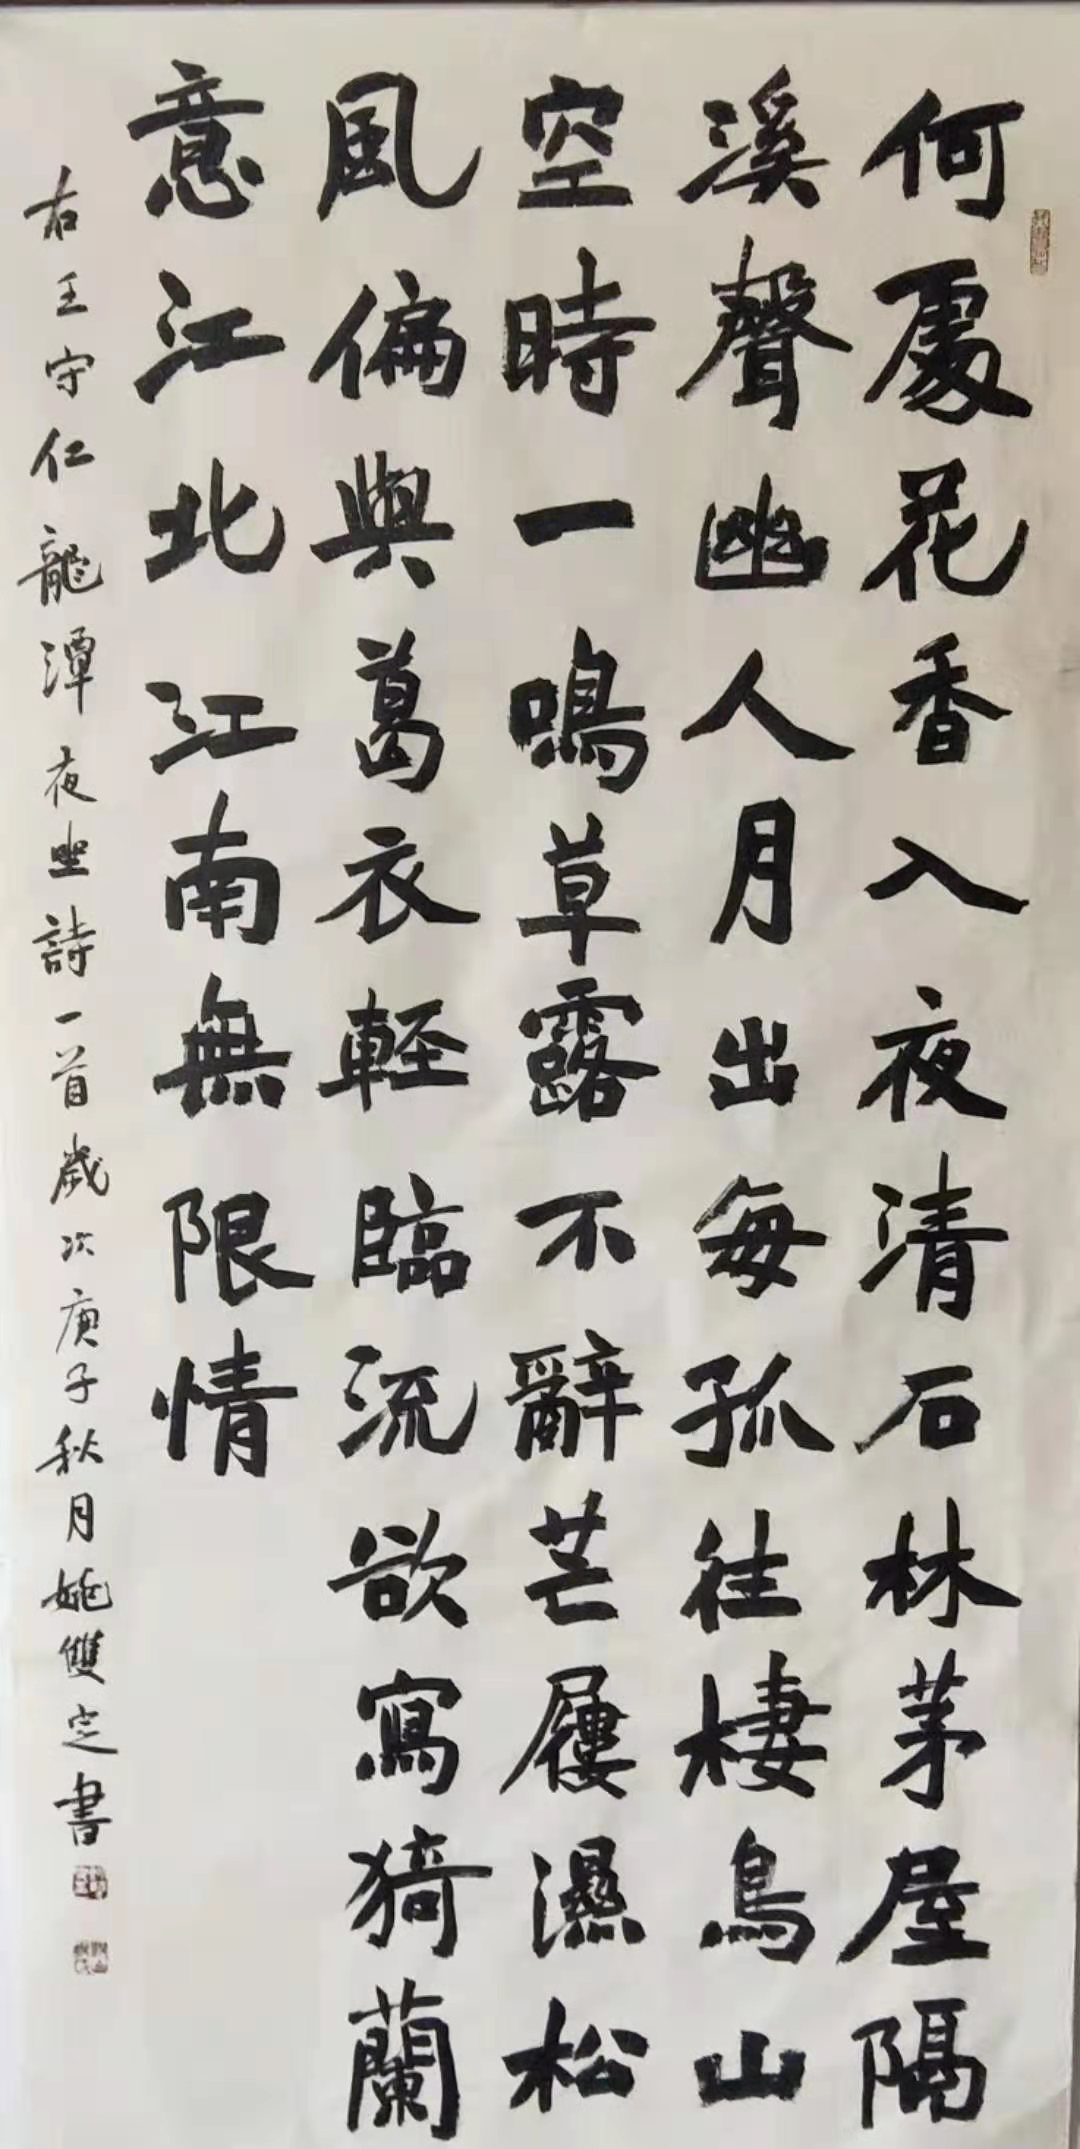 何處花香入夜清石林茅屋隔
溪聲幽人月出每孤往棲鳥山
空時一鳴草露不辭芒屨濕松
風偏與葛衣輕臨流欲寫猗蘭
意江北江南無限情
右王守仁龍潭夜坐詩一首歲次庚子秋月姚雙定書